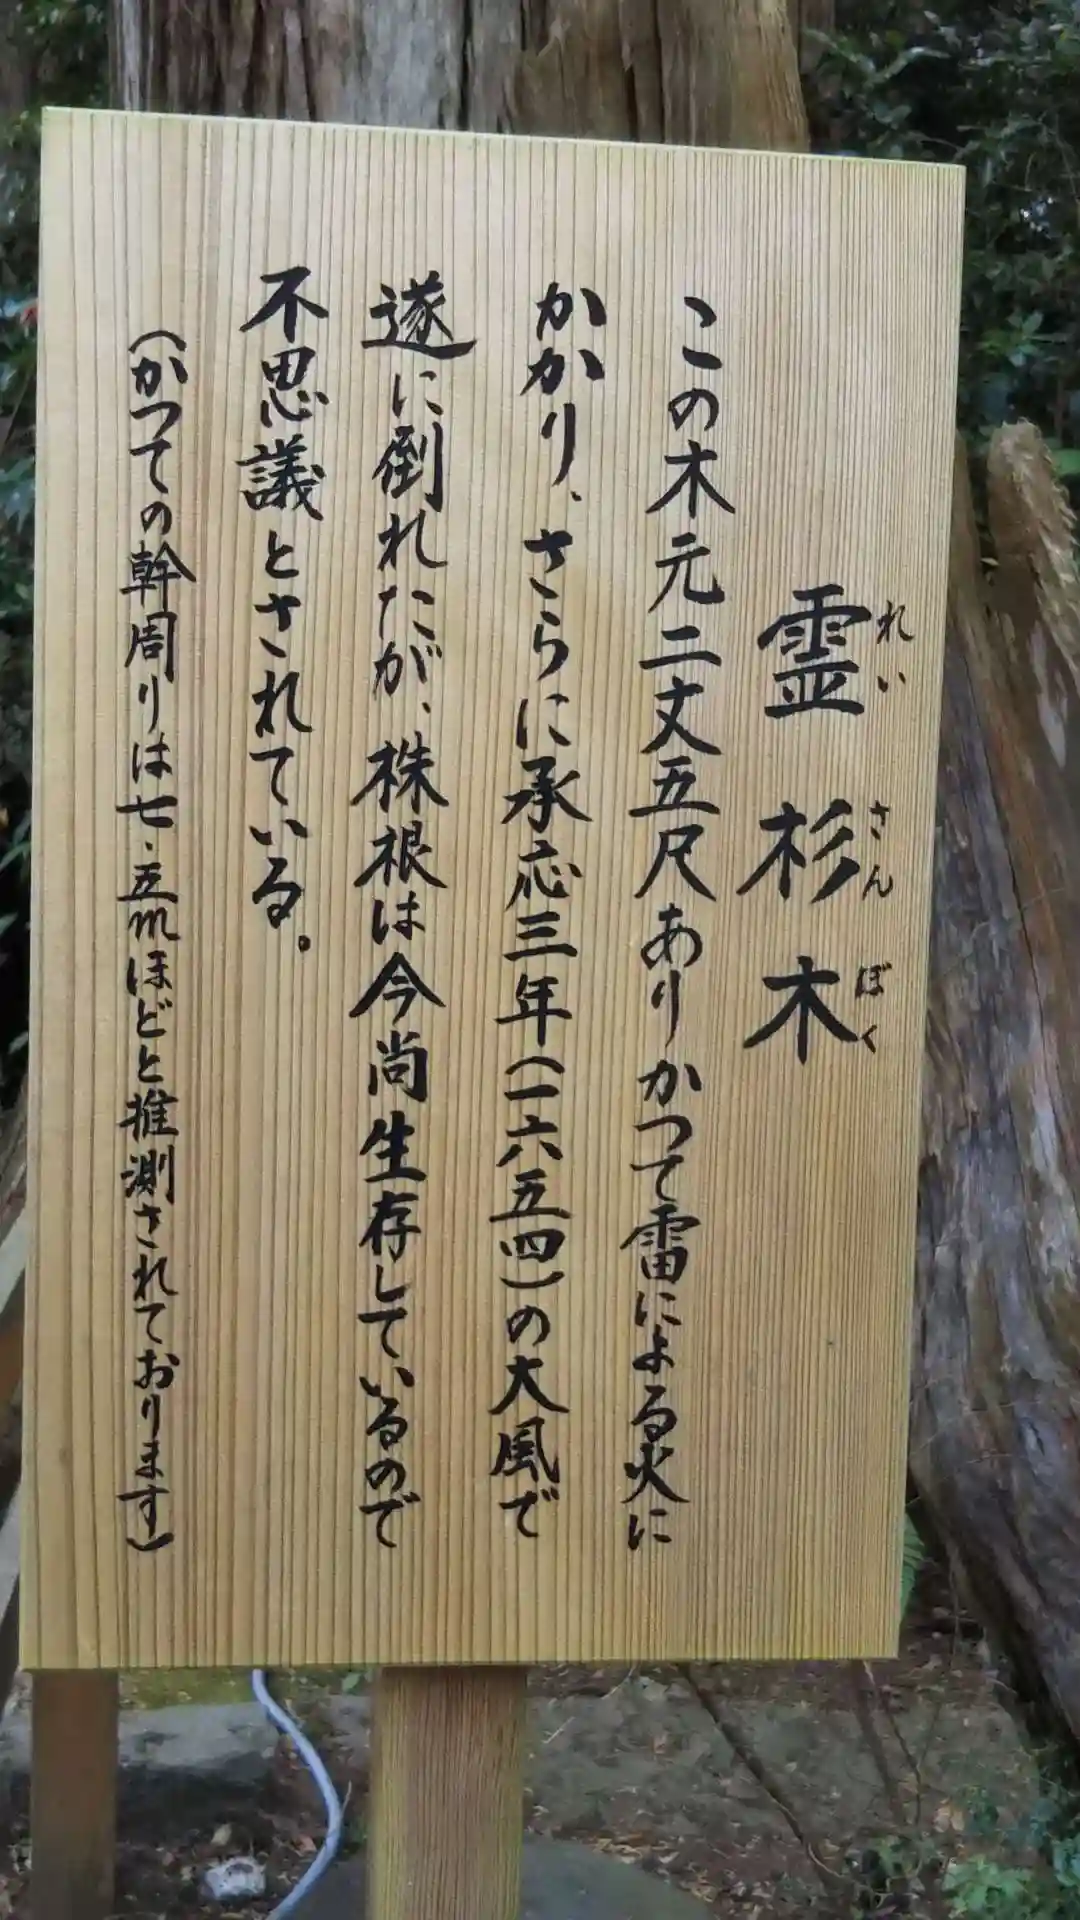 霊杉木
れいさんぼく
この木元二丈五尺ありかつて雷による火に
かかり、さらに承応三年(一六五四)の大風で
遂に倒れたが、株根は今尚生存しているので
不思議とされている。
(かつての幹周りは七・五mほどと推測されております)